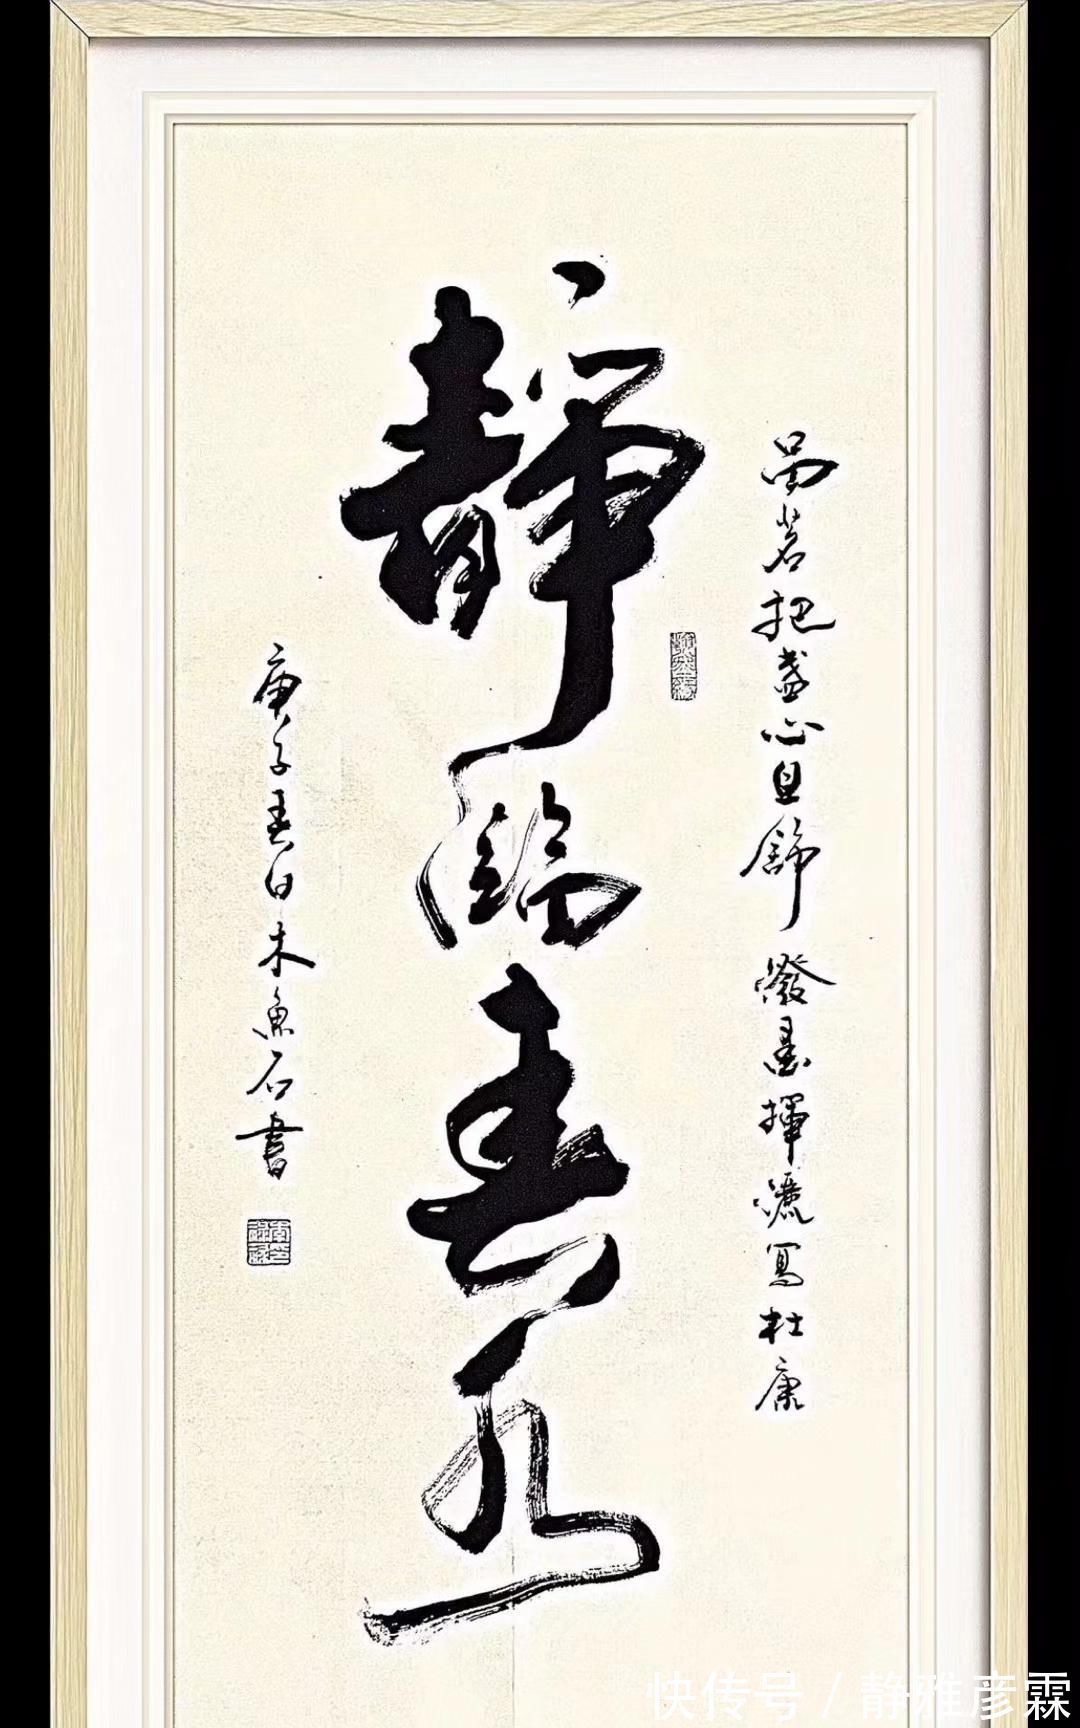 品茗把盞心且舒 潑墨揮灑寫杜康
靜臨春
庚子春日木魚石書
快传号/静雅彦霖